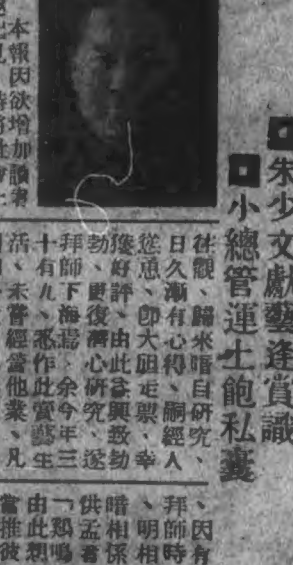 朱少文獻藝逢賞識
小總管運土飽私囊
往觀、歸來暗自研究、
日久漸有心得、嗣經人
慫恿、卽大胆走票、幸
獲好評、由此益興致勃
勃、更復潛心研究、遂
拜師下海焉、余今年三
十有九、悉作此賣藝生
活、未嘗經營他業、凡
本報因欲增加讀者
、因有
拜師時
、明相
暗相係
供孟君
「鷄鳴
由此想
當推彼